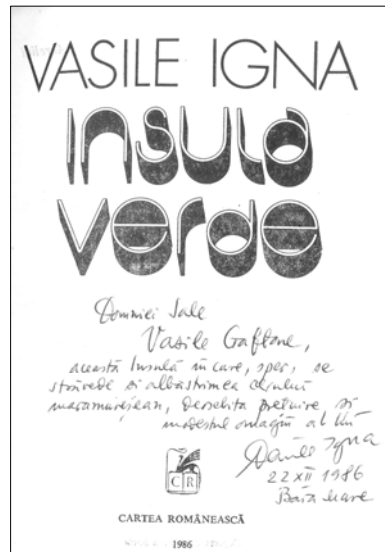 VASILE IGNA
insula
verde
Domniei Sale
Vasile Gaftone,
această Insulă în care, sper, se
străvede și albăstrimea cerului
maramureșean, deosebita prețuire și
modestul omagiu al lui
Vasile Igna
22 XII 1986
Baia Mare
CR
CARTEA ROMÂNEASCĂ
1986